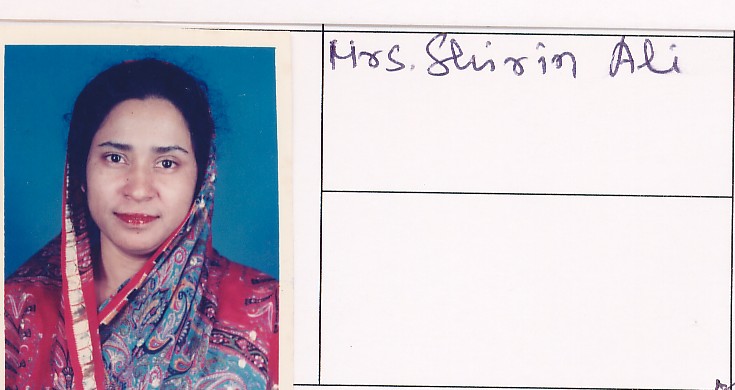 Mrs. Shirin Ali